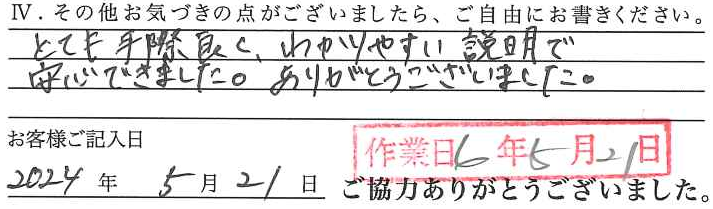 Ⅳ．その他お気づきの点がございましたら、ご自由にお書きください。
とても手際良く、わかりやすい説明で
安心できました。ありがとうございました。
お客様ご記入日
作業日 6年5月21日
2024年 5月21日 ご協力ありがとうございました。